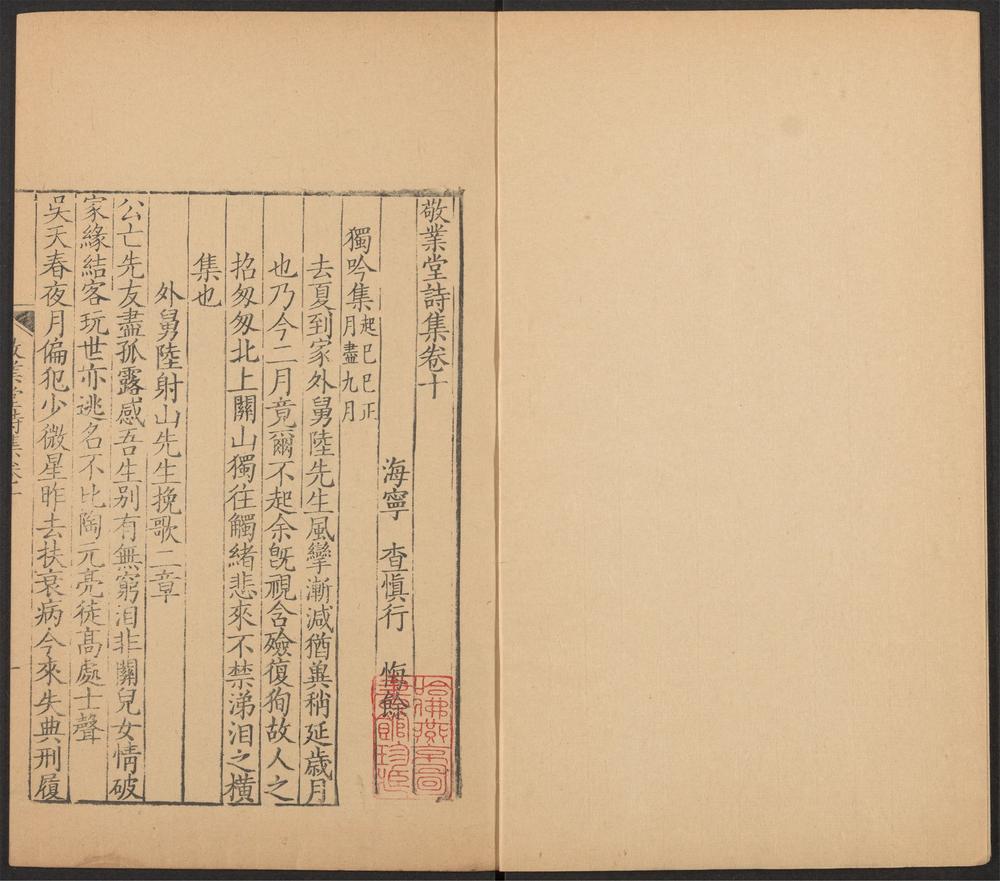 敬業堂詩集卷十
海寧 查愼行 悔餘
獨吟集起己巳正月盡九月
去夏到家外舅陸先生風攣漸減猶冀稍延歲月
也乃今二月竟爾不起余旣視含殮復徇故人之
招匆匆北上關山獨往觸緒悲來不禁涕泪之橫
集也
外舅陸射山先生挽歌二章
公亡先友盡孤露感吾生别有無窮泪非關兒女情破
家緣結客玩世亦逃名不比陶元亮徒高處士聲
吳天春夜月偏犯少微星昨去扶衰病今來失典刑履
敬業堂詩集卷十
一
哈佛燕京圖書館珍藏